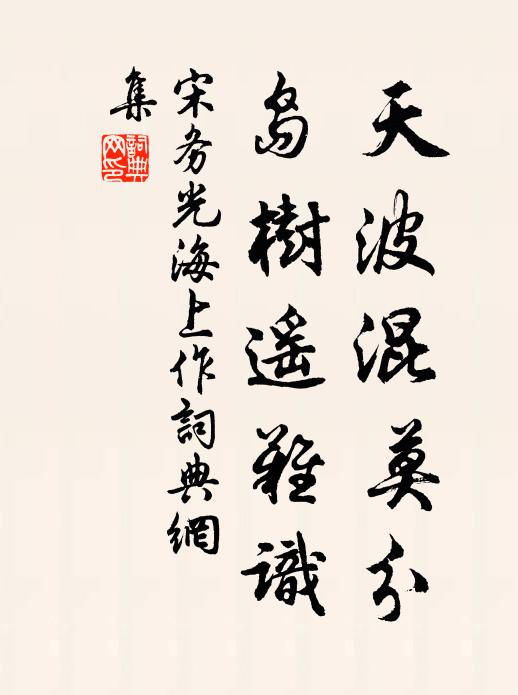 天波混莫分
島樹遥難識
宋务光海上作詞典網
集
詞典網印